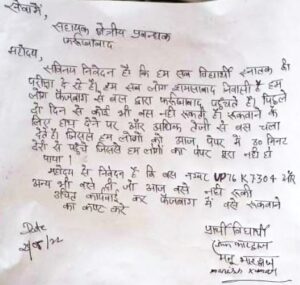 सेवा में,
सहायक क्षेत्रीय प्रबन्धक
फर्रुखाबाद
महोदय,
सविनय निवेदन है कि हम सब विद्यार्थी स्नातक की
परीक्षा दे रहे हैं। हम सब लोग शमसाबाद निवासी हैं हम
लोग फैजबाग से बस द्वारा फर्रुखाबाद पहुंचते हैं, पिछले
दो दिन से कोई भी बस नहीं रूकती है। रूकवाने के
लिए हाथ देने पर और अधिक तेजी से बस चला
देते हैं। जिससे हम लोगों को आज पेपर में 30 मिनट
देरी से पहुंचे जिससे हम लोगों का पेपर पूरा नहीं हो
पाया।
महोदय से निवेदन है कि बस नम्बर UP76K7304 और
अन्य भी बसें थी जो आज बसें नहीं रूकी
उचित कार्यवाई कर फैजबाग में बसें रूकवाने
का कष्ट करें
Date
प्रार्थी विद्यार्थी
मनू भारद्वाज